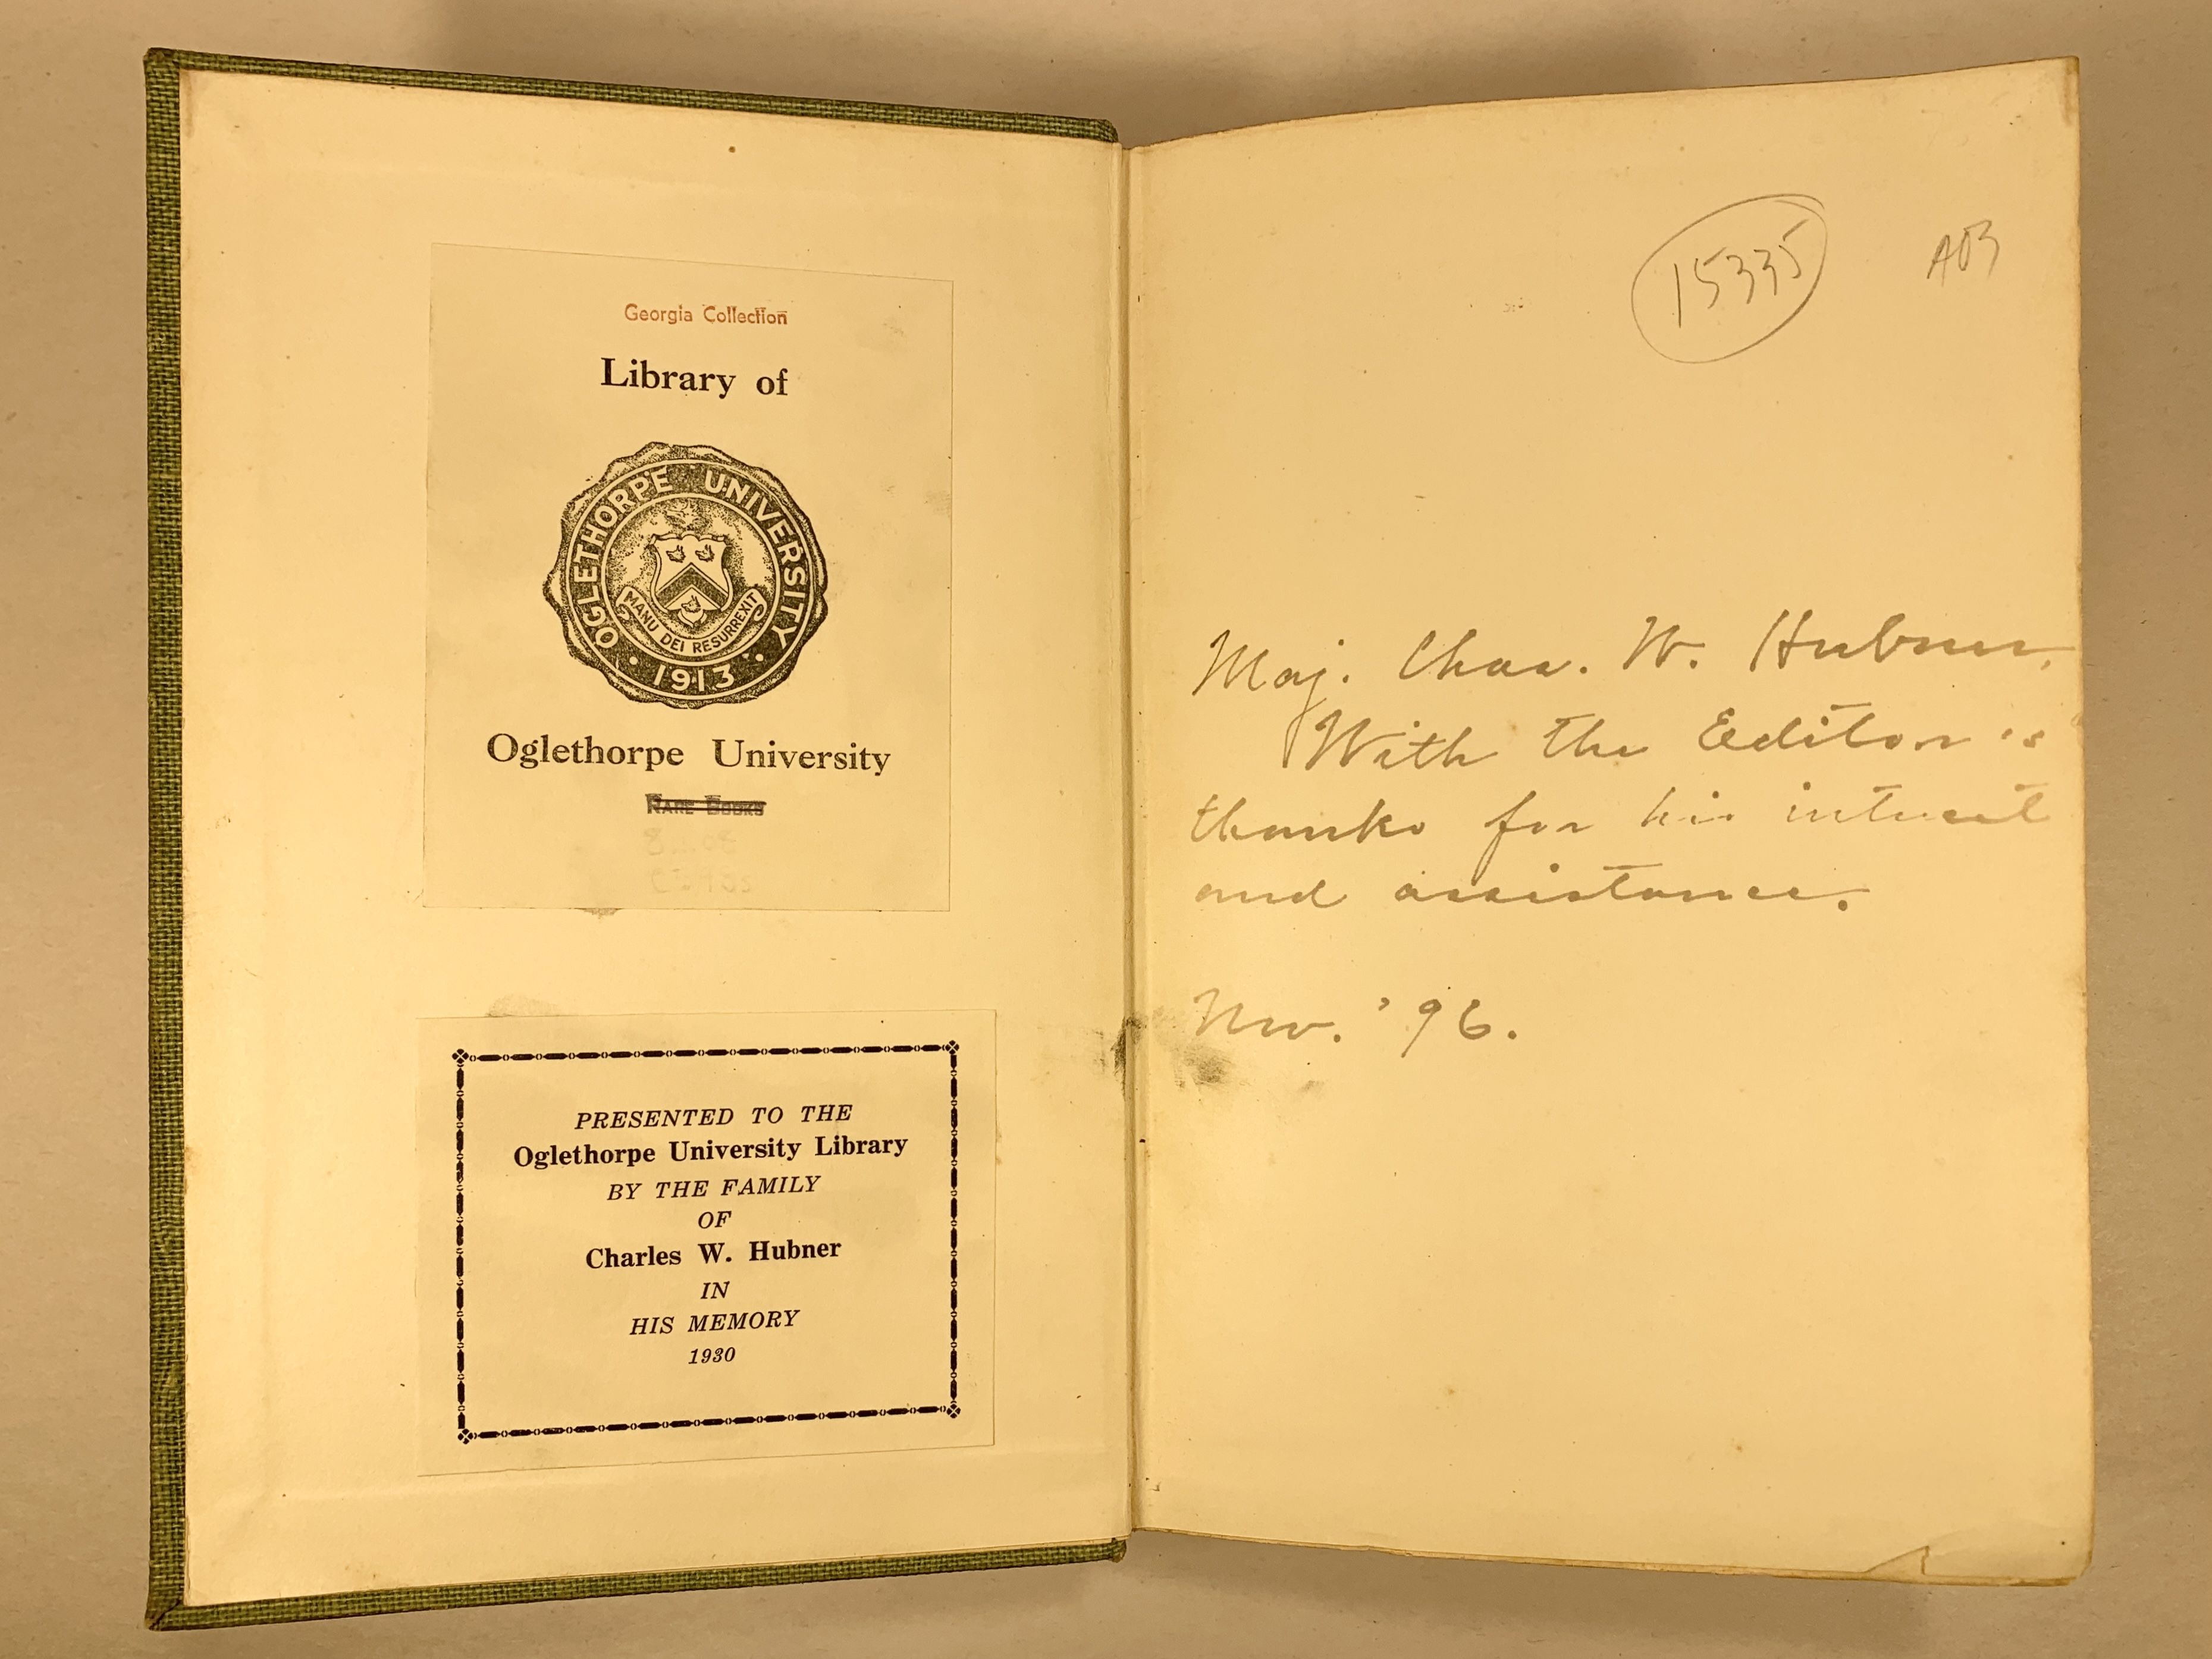 Georgia Collection
Library of
OGLETHORPE UNIVERSITY
MANU DEI RESURREXIT
1913
Oglethorpe University
RARE BOOKS
PRESENTED TO THE
Oglethorpe University Library
BY THE FAMILY
OF
Charles W. Hubner
IN
HIS MEMORY
1930
15335
Maj. Chas. W. Hubner,
With the Editor's
thanks for his interest
and assistance.
Nov. '96.